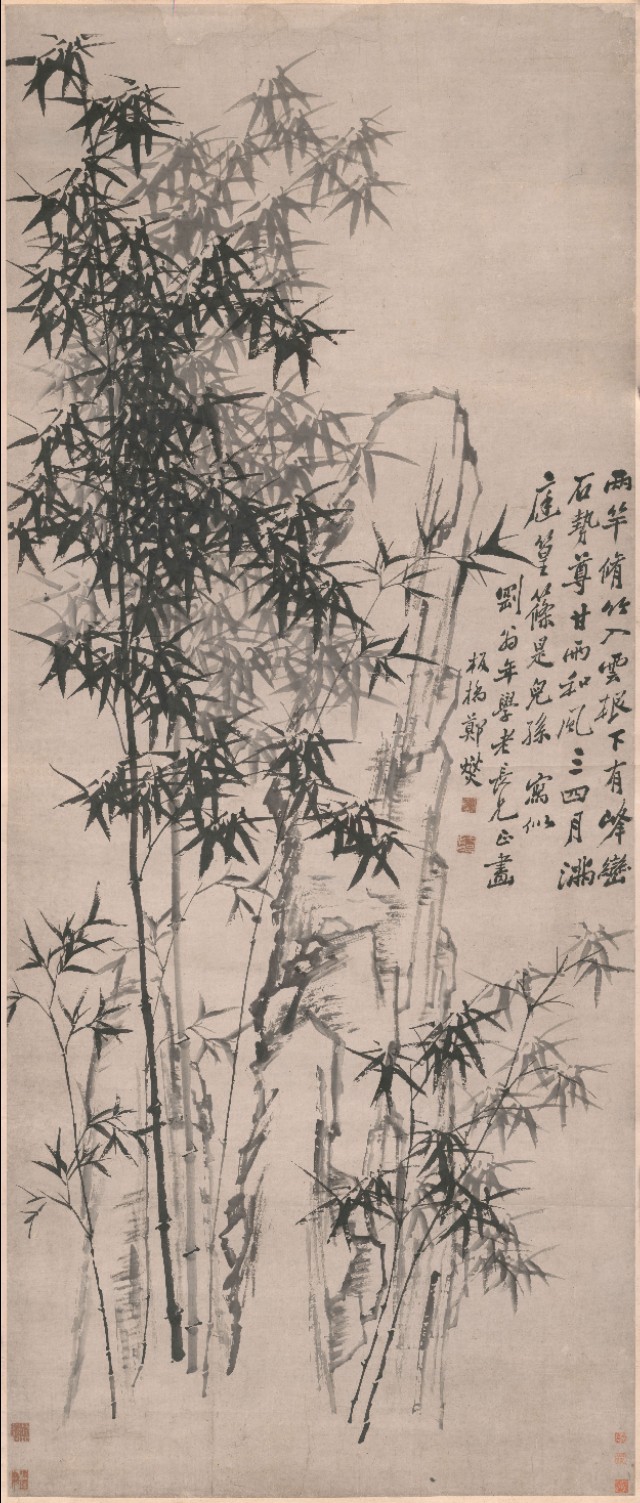 兩竿脩竹入雲根下有峰巒
石勢尊甘雨和風三四月滿
庭篁篠是兒孫　寫似
劉翁年學老長兄正畫
板橋鄭燮